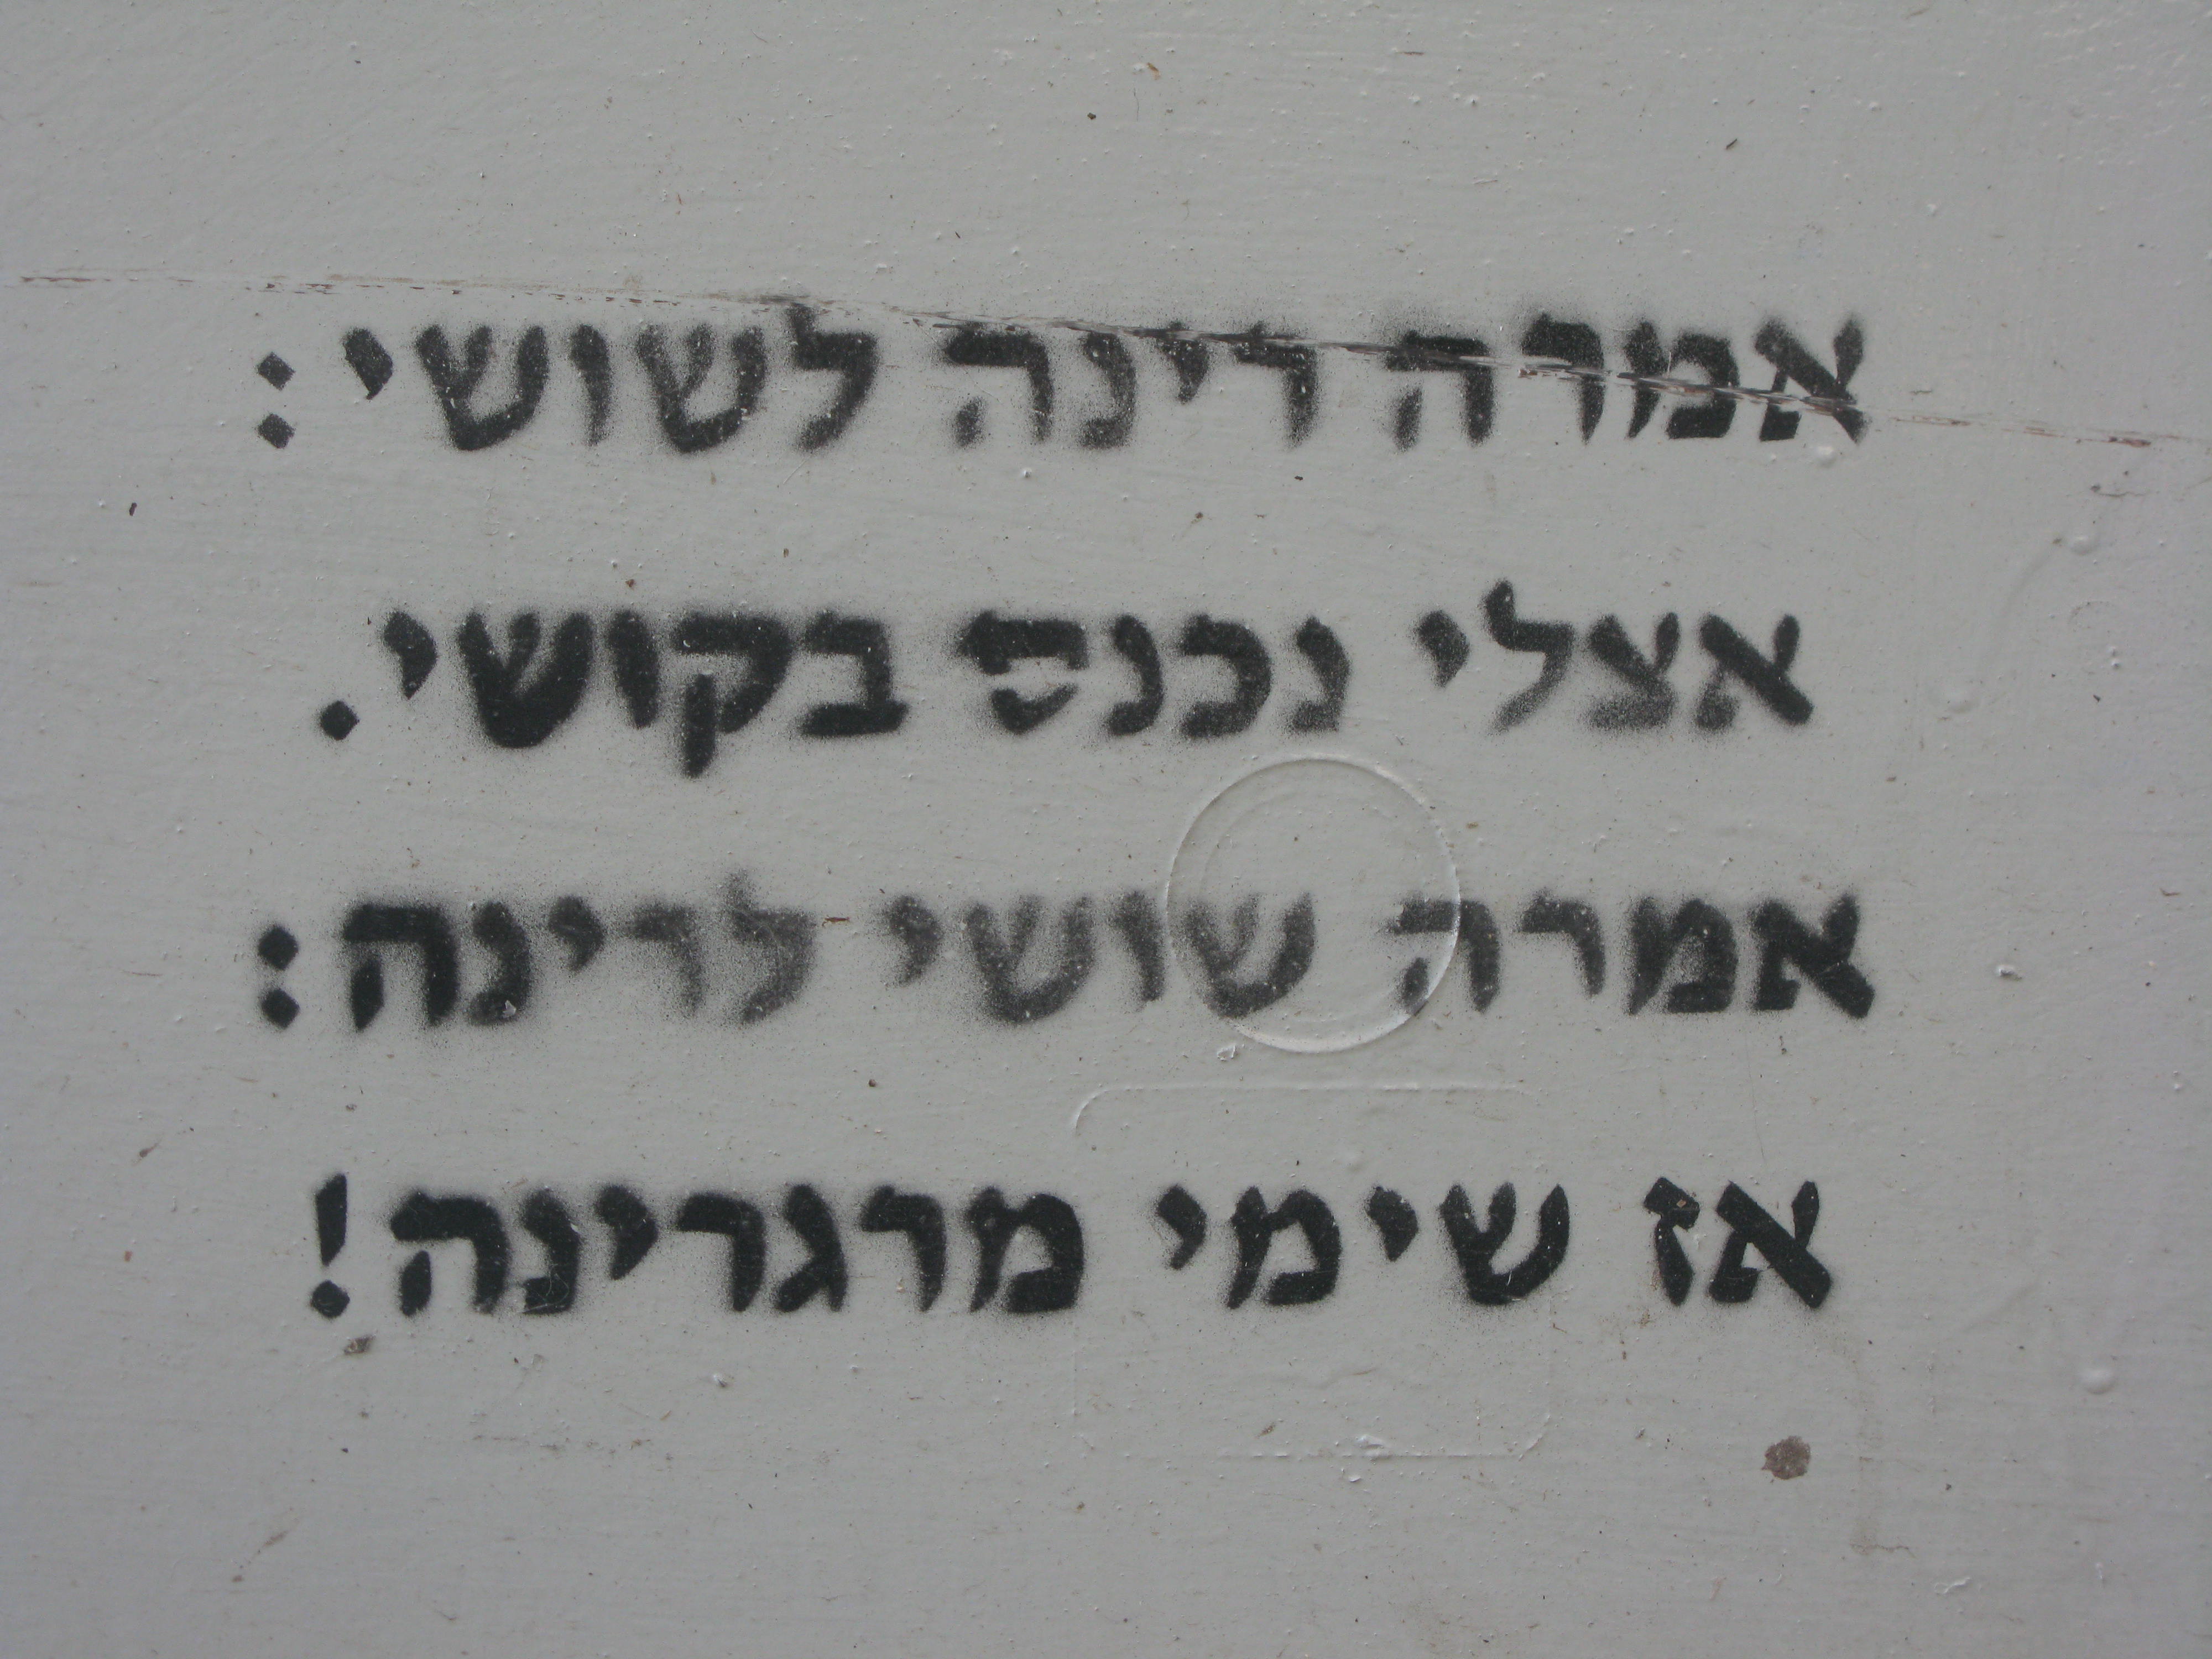 אמרה דינה לשושי:
אצלי נכנס בקושי.
אמרה שושי לדינה:
אז שימי מרגרינה!